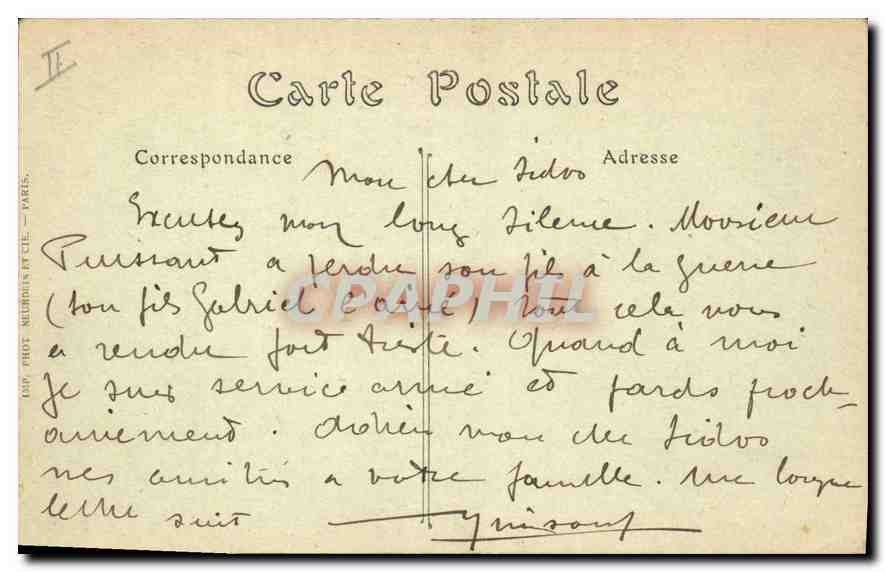 II
Carte Postale
Correspondance
Adresse
Mon cher Sidoo
Excusez mon long silence. Monsieur
Puissant a perdu son fils à la guerre
(son fils Gabriel l'ainé) tout cela nous
a rendu fort triste. Quand à moi
je suis service armé et pards proch-
ainement. Adhieu mon cher Sidoo
mes amitiés a votre famille. une longue
lettre suit
IMP. PHOT. NEURDEIN ET CIE. — PARIS.
CPAPHIL